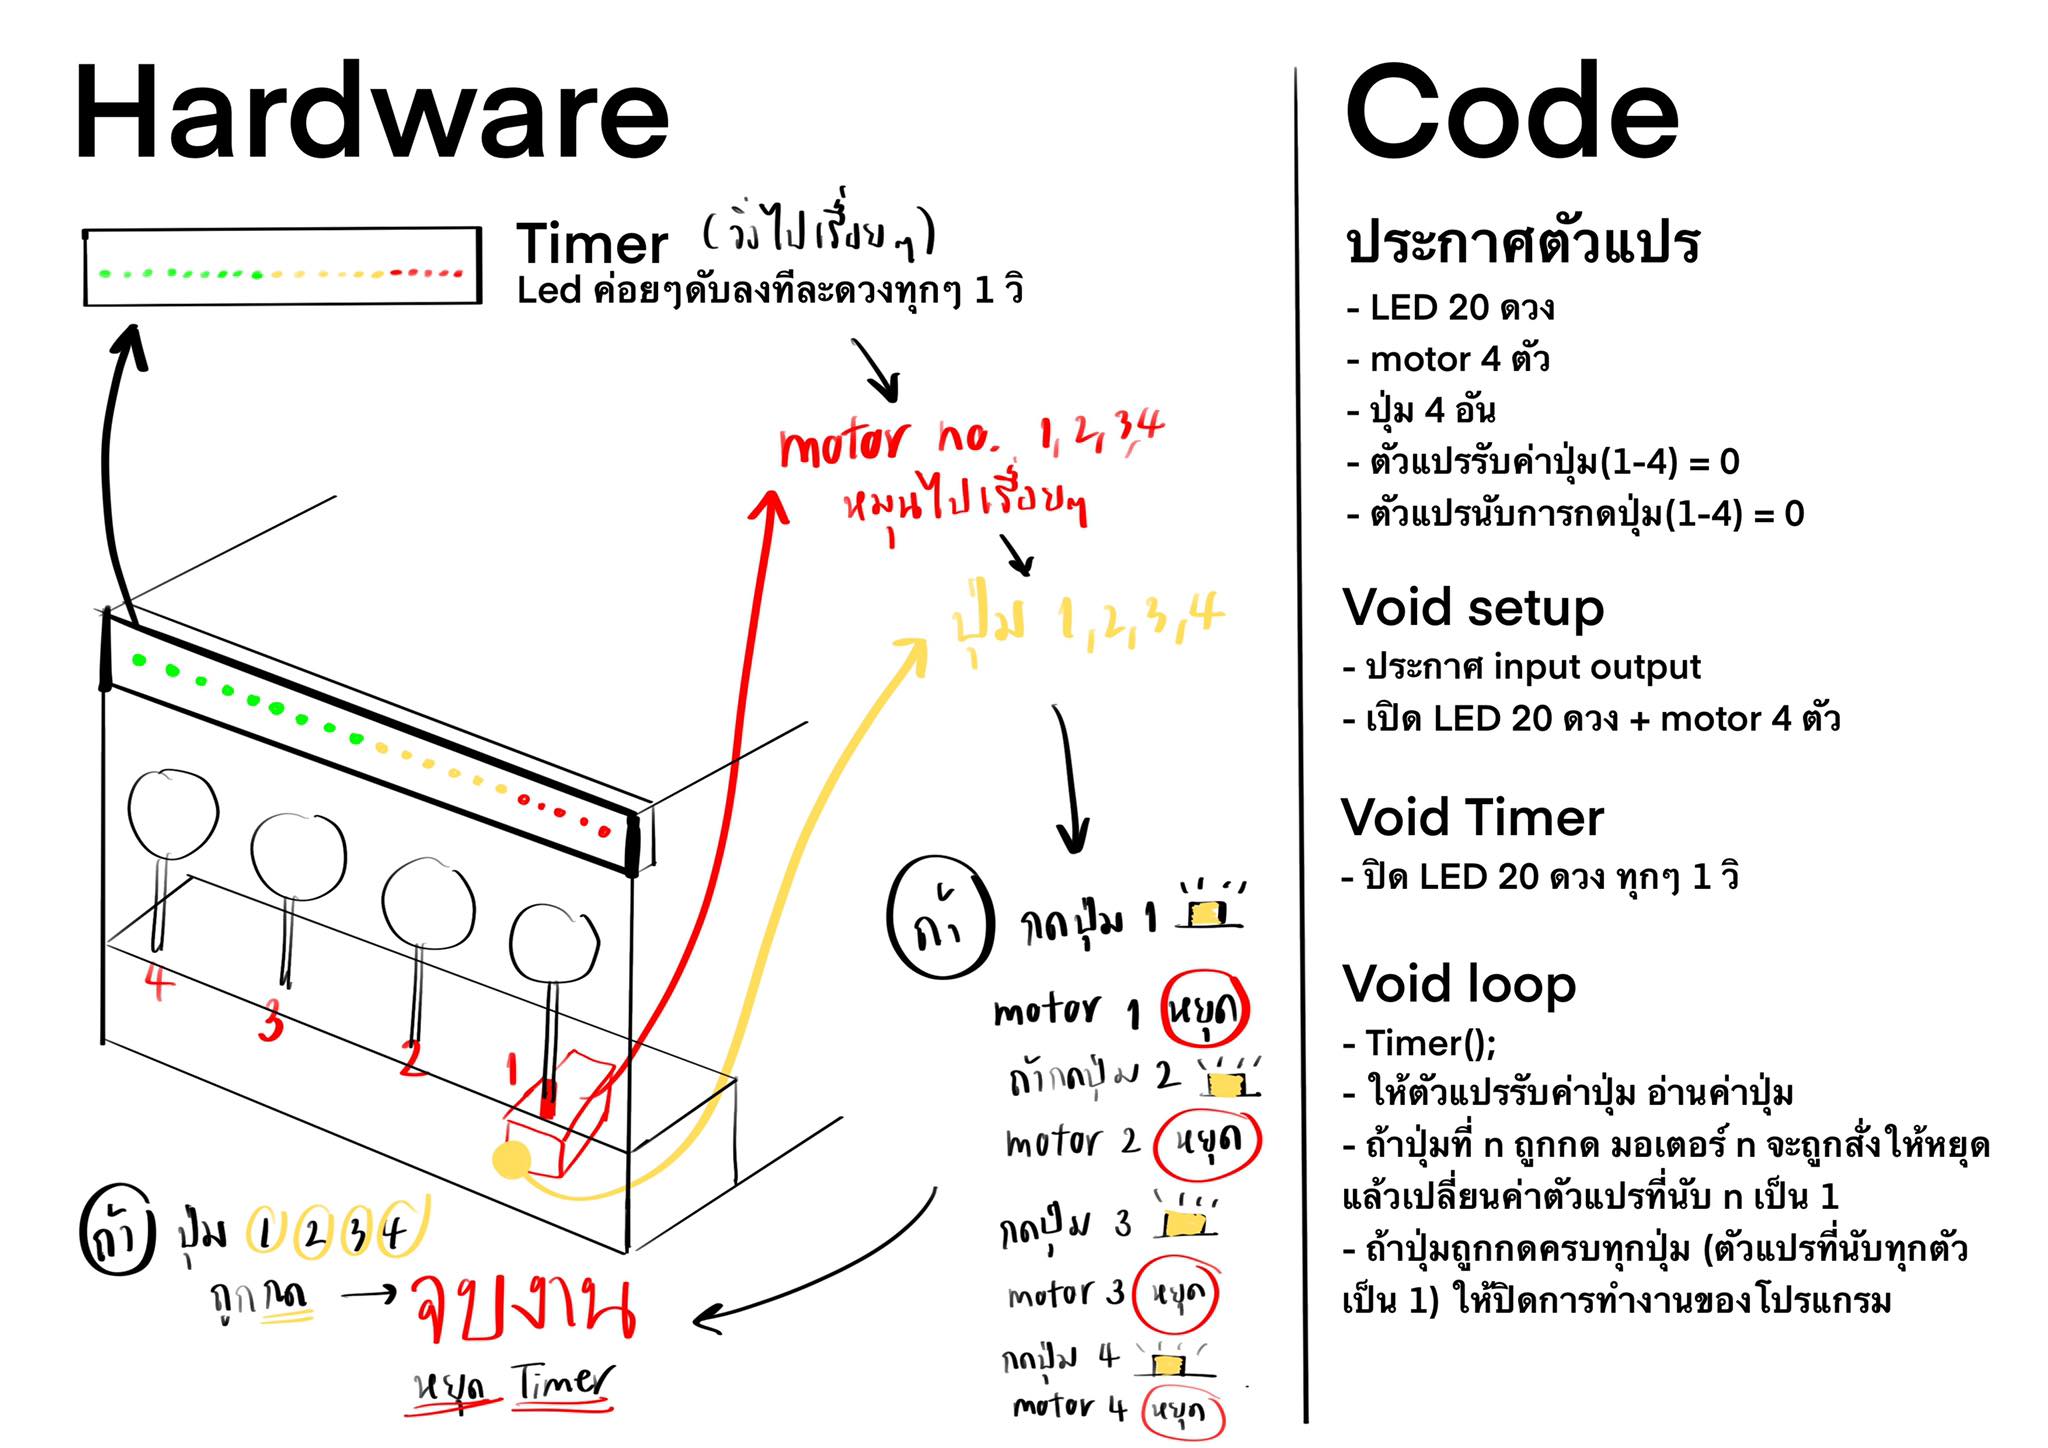 Hardware
Timer (วิ่งไปเรื่อยๆ)
Led ค่อยๆดับลงทีละดวงทุกๆ 1 วิ
motor no. 1,2,3,4
หมุนไปเรื่อยๆ
ปุ่ม 1,2,3,4
ถ้า กดปุ่ม 1
motor 1 หยุด
ถ้ากดปุ่ม 2
motor 2 หยุด
กดปุ่ม 3
motor 3 หยุด
กดปุ่ม 4
motor 4 หยุด
4
3
2
1
ถ้า ปุ่ม 1 2 3 4
ถูกกด → จบงาน
หยุด Timer
Code
ประกาศตัวแปร
- LED 20 ดวง
- motor 4 ตัว
- ปุ่ม 4 อัน
- ตัวแปรรับค่าปุ่ม(1-4) = 0
- ตัวแปรนับการกดปุ่ม(1-4) = 0
Void setup
- ประกาศ input output
- เปิด LED 20 ดวง + motor 4 ตัว
Void Timer
- ปิด LED 20 ดวง ทุกๆ 1 วิ
Void loop
- Timer();
- ให้ตัวแปรรับค่าปุ่ม อ่านค่าปุ่ม
- ถ้าปุ่มที่ n ถูกกด มอเตอร์ n จะถูกสั่งให้หยุด
แล้วเปลี่ยนค่าตัวแปรที่นับ n เป็น 1
- ถ้าปุ่มถูกกดครบทุกปุ่ม (ตัวแปรที่นับทุกตัว
เป็น 1) ให้ปิดการทำงานของโปรแกรม